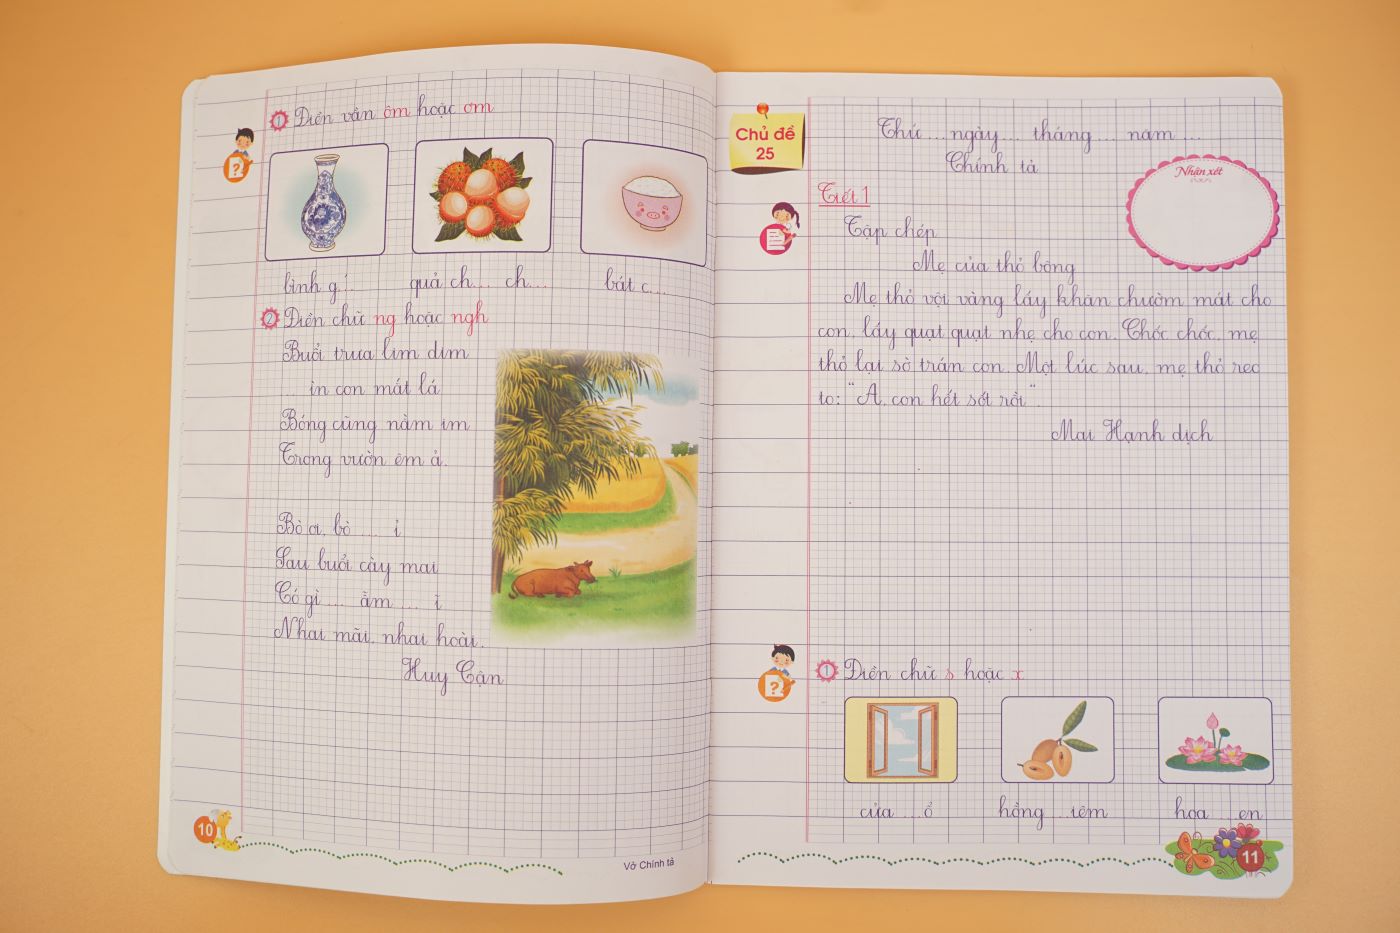 1 Điền vần ôm hoặc ơm
bình g...
quả ch... ch...
bát c...
2 Điền chữ ng hoặc ngh
Buổi trưa lim dim
... ìn con mắt lá
Bóng cũng nằm im
Trong vườn êm ả.
Bò ơi, bò ... ỉ
Sau buổi cày mai
Có gì ... ẫm ... ĩ
Nhai mãi, nhai hoài.
Huy Cận
10
Vở Chính tả
Chủ đề
25
Thứ ... ngày ... tháng ... năm ...
Chính tả
Nhận xét
Tiết 1
Tập chép
Mẹ của thỏ bông
Mẹ thỏ vội vàng lấy khăn chườm mát cho
con, lấy quạt quạt nhẹ cho con. Chốc chốc, mẹ
thỏ lại sờ trán con. Một lúc sau, mẹ thỏ reo
to: "A, con hết sốt rồi".
Mai Hạnh dịch
1 Điền chữ s hoặc x
cửa ...ổ
hồng ...iêm
hoa ...en
11